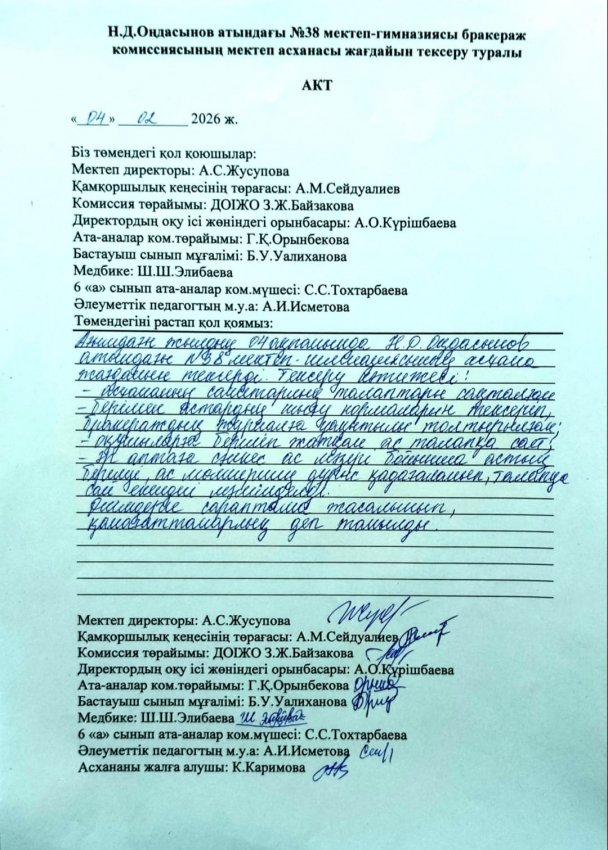 Н.Д.Оңдасынов атындағы №38 мектеп-гимназиясы бракераж
комиссиясының мектеп асханасы жағдайын тексеру туралы
АКТ
«04» 02 2026 ж.
Біз төмендегі қол қоюшылар:
Мектеп директоры: А.С.Жусупова
Қамқоршылық кеңесінің төрағасы: А.М.Сейдуалиев
Комиссия төрайымы: ДОІЖО З.Ж.Байзакова
Директордың оқу ісі жөніндегі орынбасары: А.О.Күрішбаева
Ата-аналар ком.төрайымы: Г.Қ.Орынбекова
Бастауыш сынып мұғалімі: Б.У.Уалиханова
Медбике: Ш.Ш.Элибаева
6 «а» сынып ата-аналар ком.мүшесі: С.С.Тохтарбаева
Әлеуметтік педагогтың м.у.а: А.И.Исметова
Төмендегіні растап қол қоямыз:
Ағымдағы жылдың 04 ақпанында Н.Д. Оңдасынов
атындағы №38 мектеп-гимназиясының асхана
жағдайын тексерді. Тексеру нәтижесі:
- Асхананың санитарлық талаптары сақталған
- берілген астардың шығу нормаларын тексеріп,
бракераждық журналға уақтылы толтырылған;
- оқушыларға беріліп жатқан ас талапқа сай;
- аптаға сәйкес ас мәзірі бойынша астың
берілуі, ас мөлшерінің дұрыс қадағаланып, талапқа
сай екендігі
сараптама жасалынып,
қанағаттанарлық деп танылды.
Мектеп директоры: А.С.Жусупова
Қамқоршылық кеңесінің төрағасы: А.М.Сейдуалиев
Комиссия төрайымы: ДОІЖО З.Ж.Байзакова
Директордың оқу ісі жөніндегі орынбасары: А.О.Күрішбаева
Ата-аналар ком.төрайымы: Г.Қ.Орынбекова
Бастауыш сынып мұғалімі: Б.У.Уалиханова
Медбике: Ш.Ш.Элибаева
6 «а» сынып ата-аналар ком.мүшесі: С.С.Тохтарбаева
Әлеуметтік педагогтың м.у.а: А.И.Исметова
Асхананы жалға алушы: К.Каримова